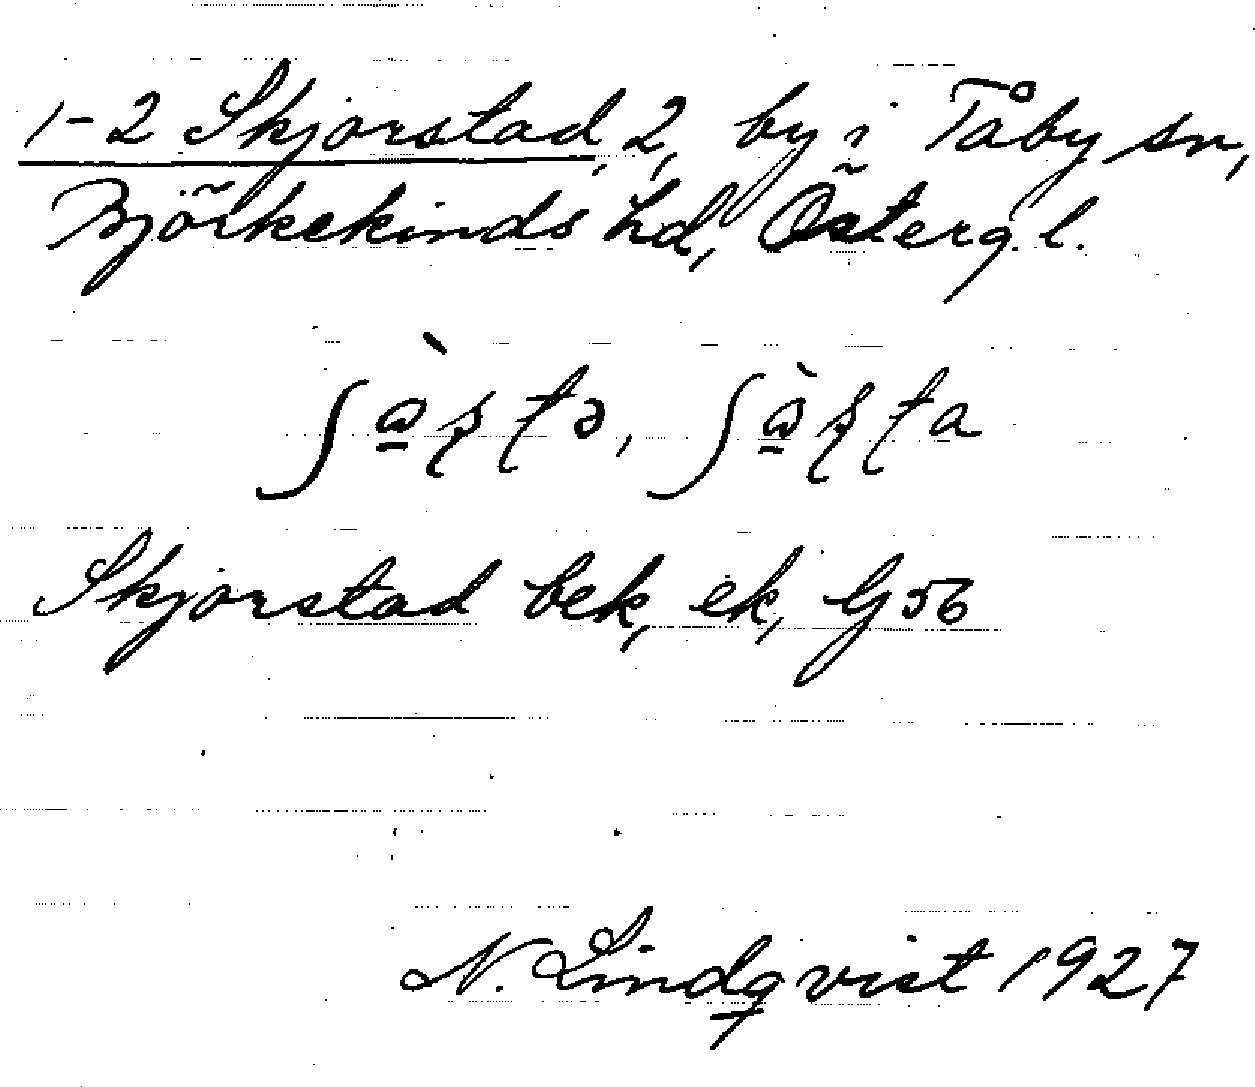 1-2 Skjorstad, 2, by i Tåby sn,
Björkekinds hd, Österg. l.
Skjorstad bek, ek, Gj 56
N. Lindqvist 1927